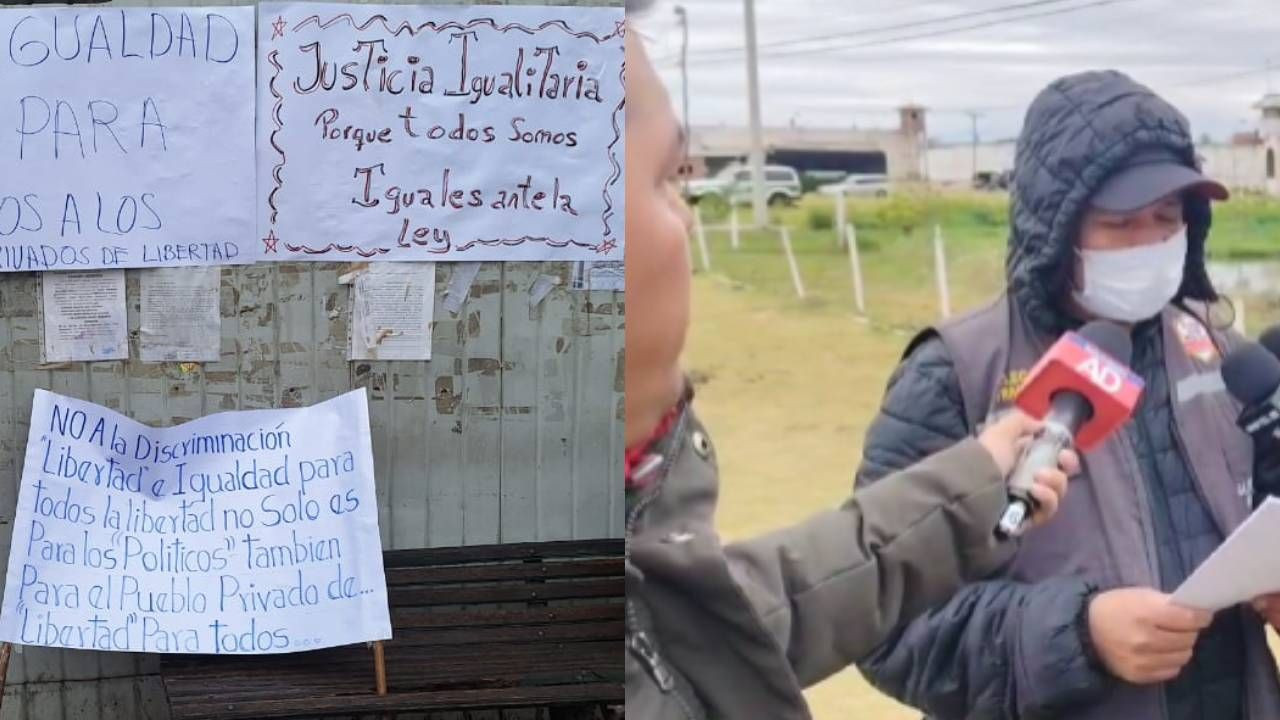 GUALDAD
PARA
OS A LOS
RIVADOS DE LIBERTAD
Justicia Igualitaria
Porque todos Somos
Iguales ante la
Ley
NO A la Discriminación
"Libertad" e Igualdad para
todos la libertad no Solo es
Para los "Políticos" tambien
Para el Pueblo Privado de...
"Libertad" Para todos....
AD